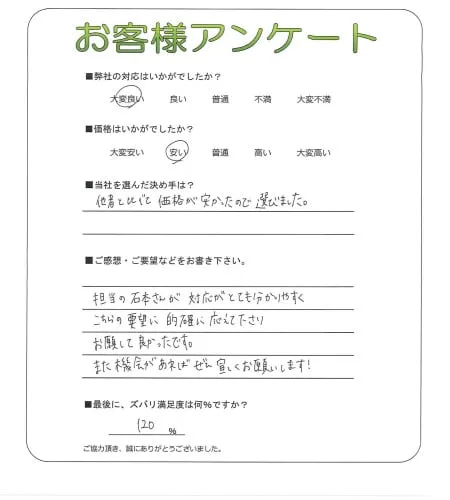 お客様アンケート
■弊社の対応はいかがでしたか？
大変良い 良い 普通 不満 大変不満
■価格はいかがでしたか？
大変安い 安い 普通 高い 大変高い
■当社を選んだ決め手は？
他者と比べて 価格が安かったので 選びました。
■ご感想・ご要望などをお書き下さい。
担当の石本さんが 対応がとても分かりやすく
こちらの要望に 的確に 応えて下さり
お願いして良かったです。
また機会があれば ぜひ 宜しくお願いします!
■最後に、ズバリ満足度は何％ですか？
120 %
ご協力頂き、誠にありがとうございました。